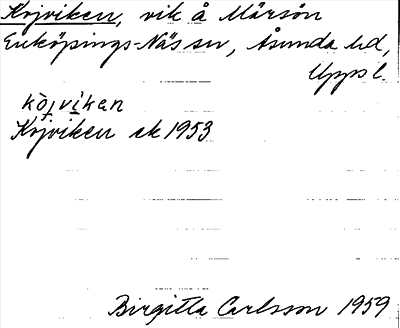 Kojviken, vik å Märsön
Enköpings-Näs sn, Åsunda hd,
Uppsl.
kòjvìken
Kojviken ek 1953
Birgitta Carlsson 1959